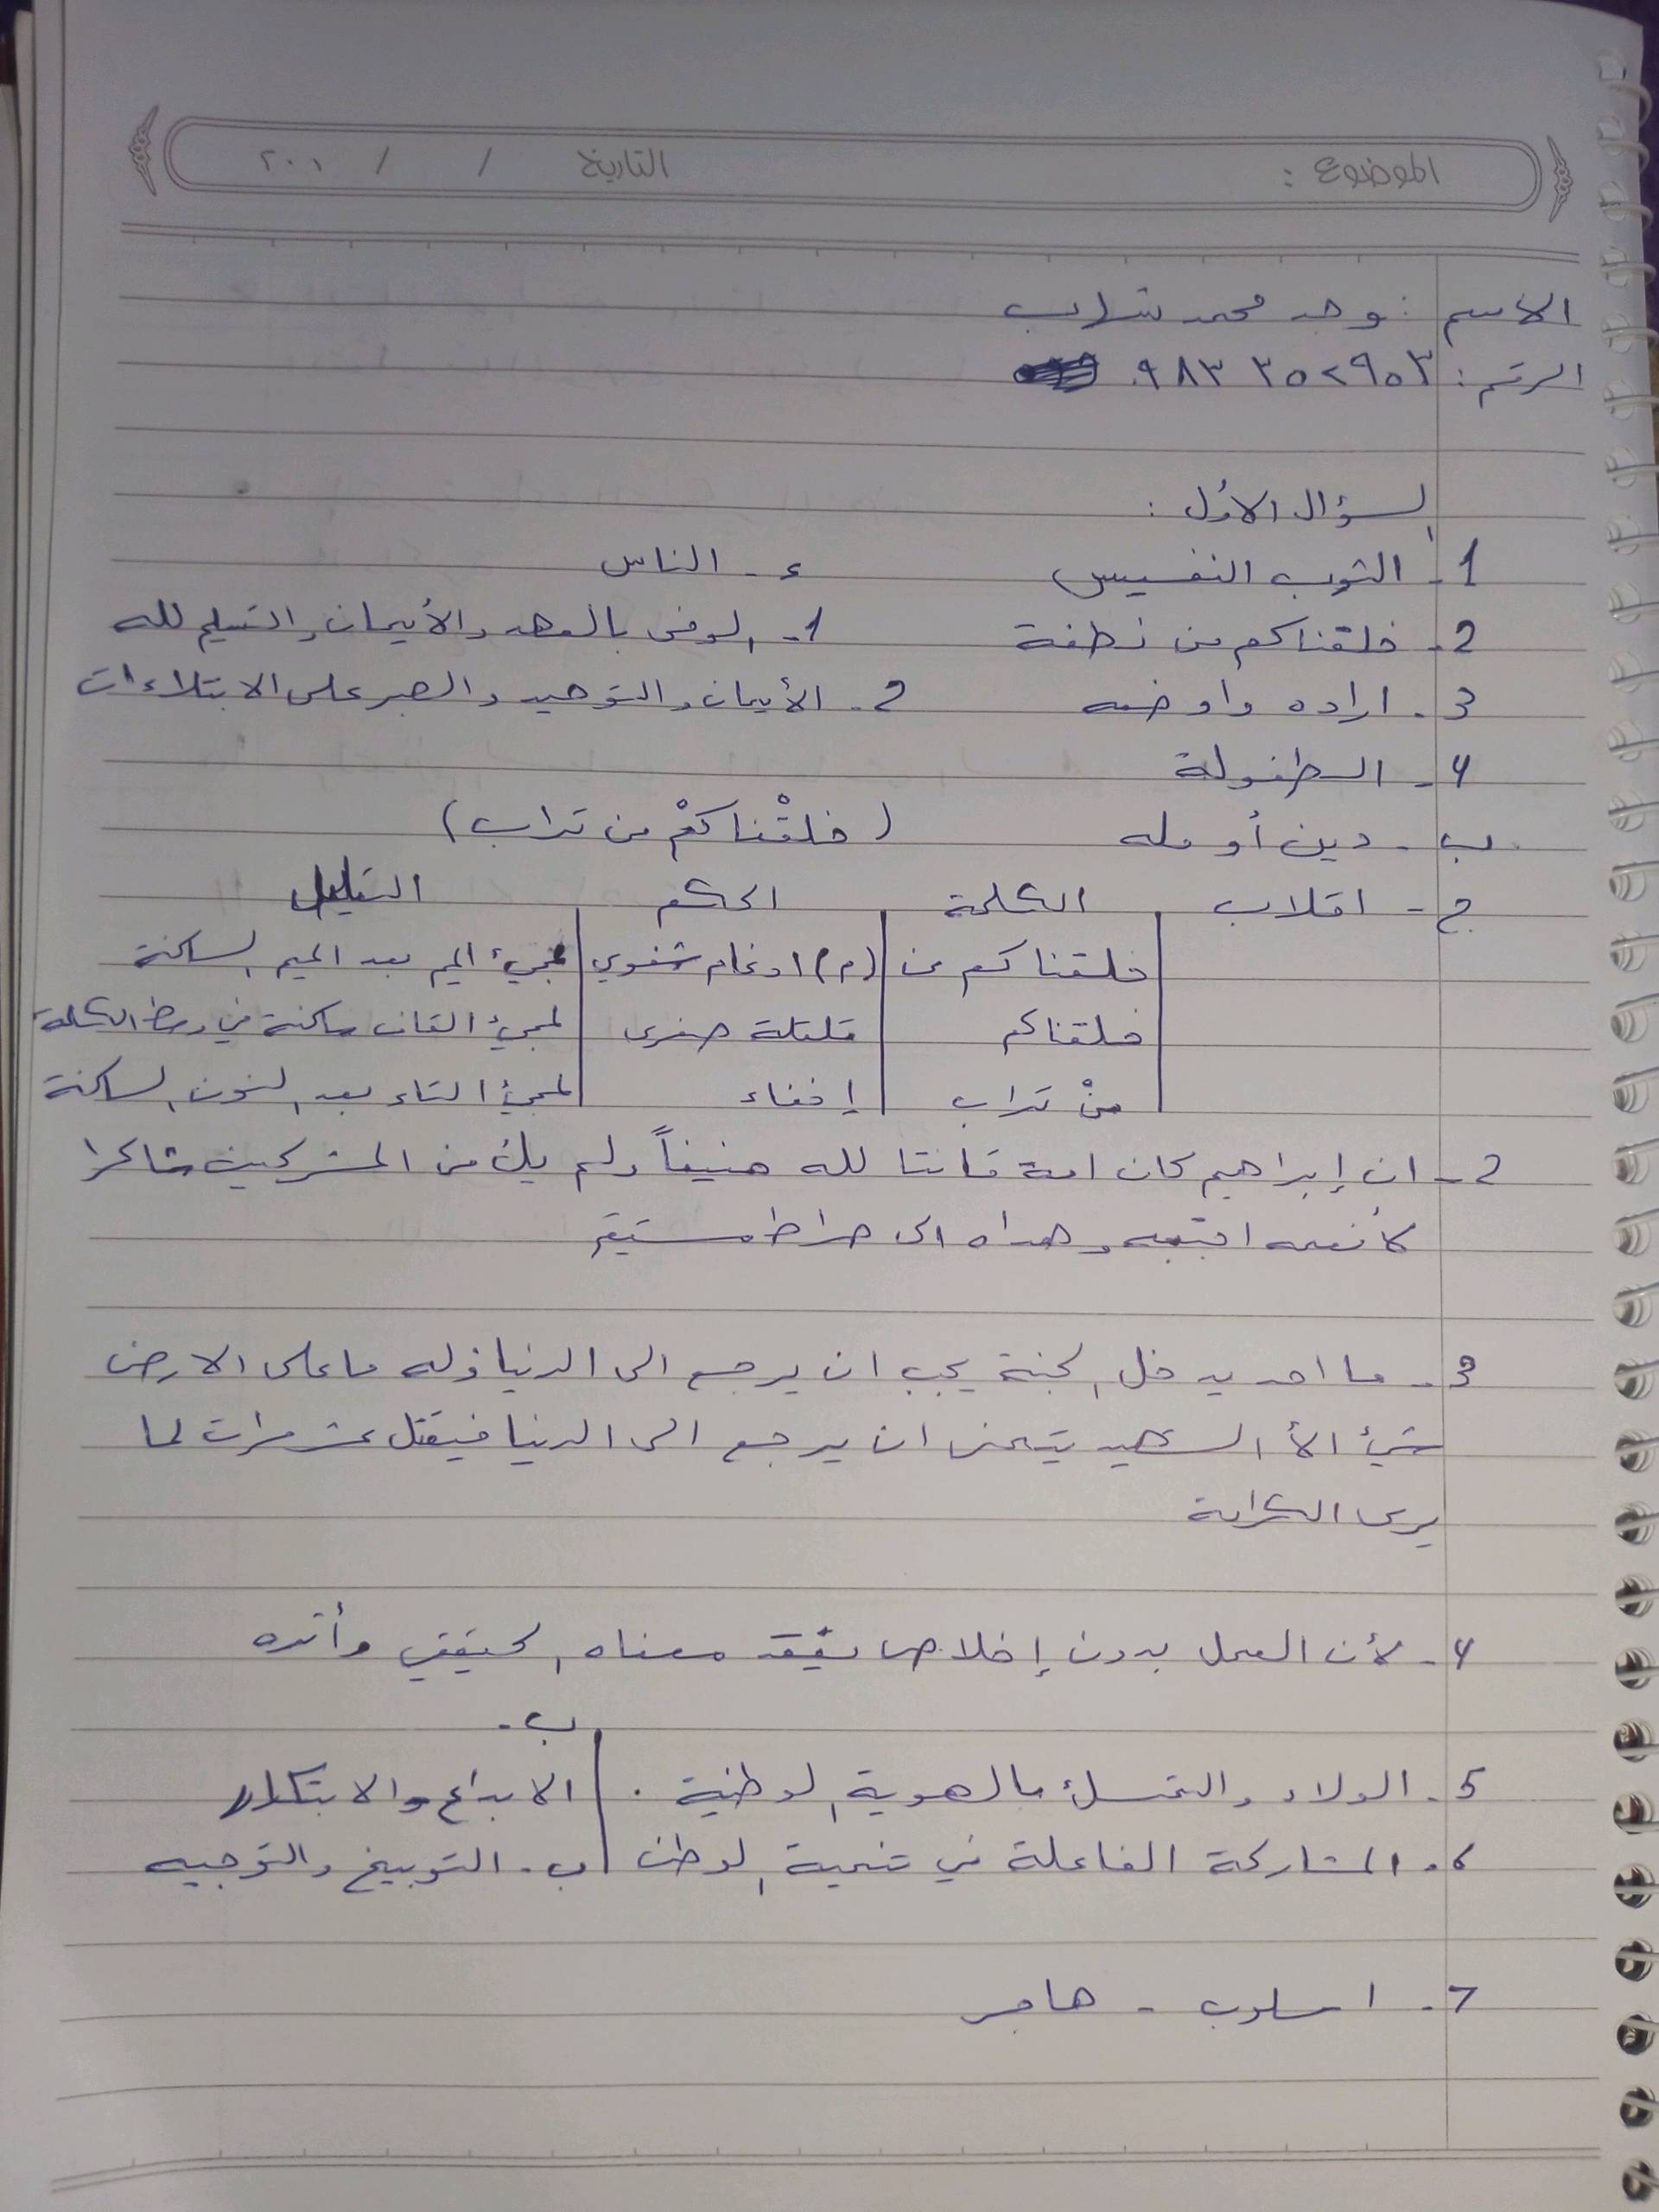 الموضوع : التاريخ / / ٢٠٠١
الاسم : وحد محمد شهاب
الرقم : ٠٩٨٣ ٣٥٢٩٥٣
السؤال الأول :
1- الثوب النفيس ء - الناس
2- خلقناكم من نطفة 1- الوفى بالعهد والأيمان والتسليم لله
3- اراده واوضه 2- الأيمان والتوحيد والصبر على الابتلاءات
4- الطفولة
ب - دين أو مله (خلقْناكمْ من تراب)
ج - اقلاب الكلمة الحكم التعليل
خلقناكم من (م) ادغام شفوي لمجيء الميم بعد الميم الساكنة
خلقناكم قلقلة صغرى لمجيء القاف ساكنة في وسط الكلمة
منْ تراب إخفاء لمجيء التاء بعد النون الساكنة
2- ان إبراهيم كان امة قانتا لله حنيفاً ولم يك من المشركين شاكرا
لأنعمه اجتبه وهداه الى صراط مستقيم
3- ما احد يدخل الجنة يحب ان يرجع الى الدنيا وله ما على الارض
شيء الأ الشهيد يتمنى ان يرجع الى الدنيا فيقتل عشر مرات لما
يرى الكرامة
4- لأن العمل بدون إخلاص يفقد معناه الحقيقي وأثره
ب -
5- الولاء والتمسك بالهوية الوطنية . الابداع والابتكار
6- المشاركة الفاعلة في تنمية الوطن ب - التوبيخ والتوجيه
7- اسلوب - هاجر